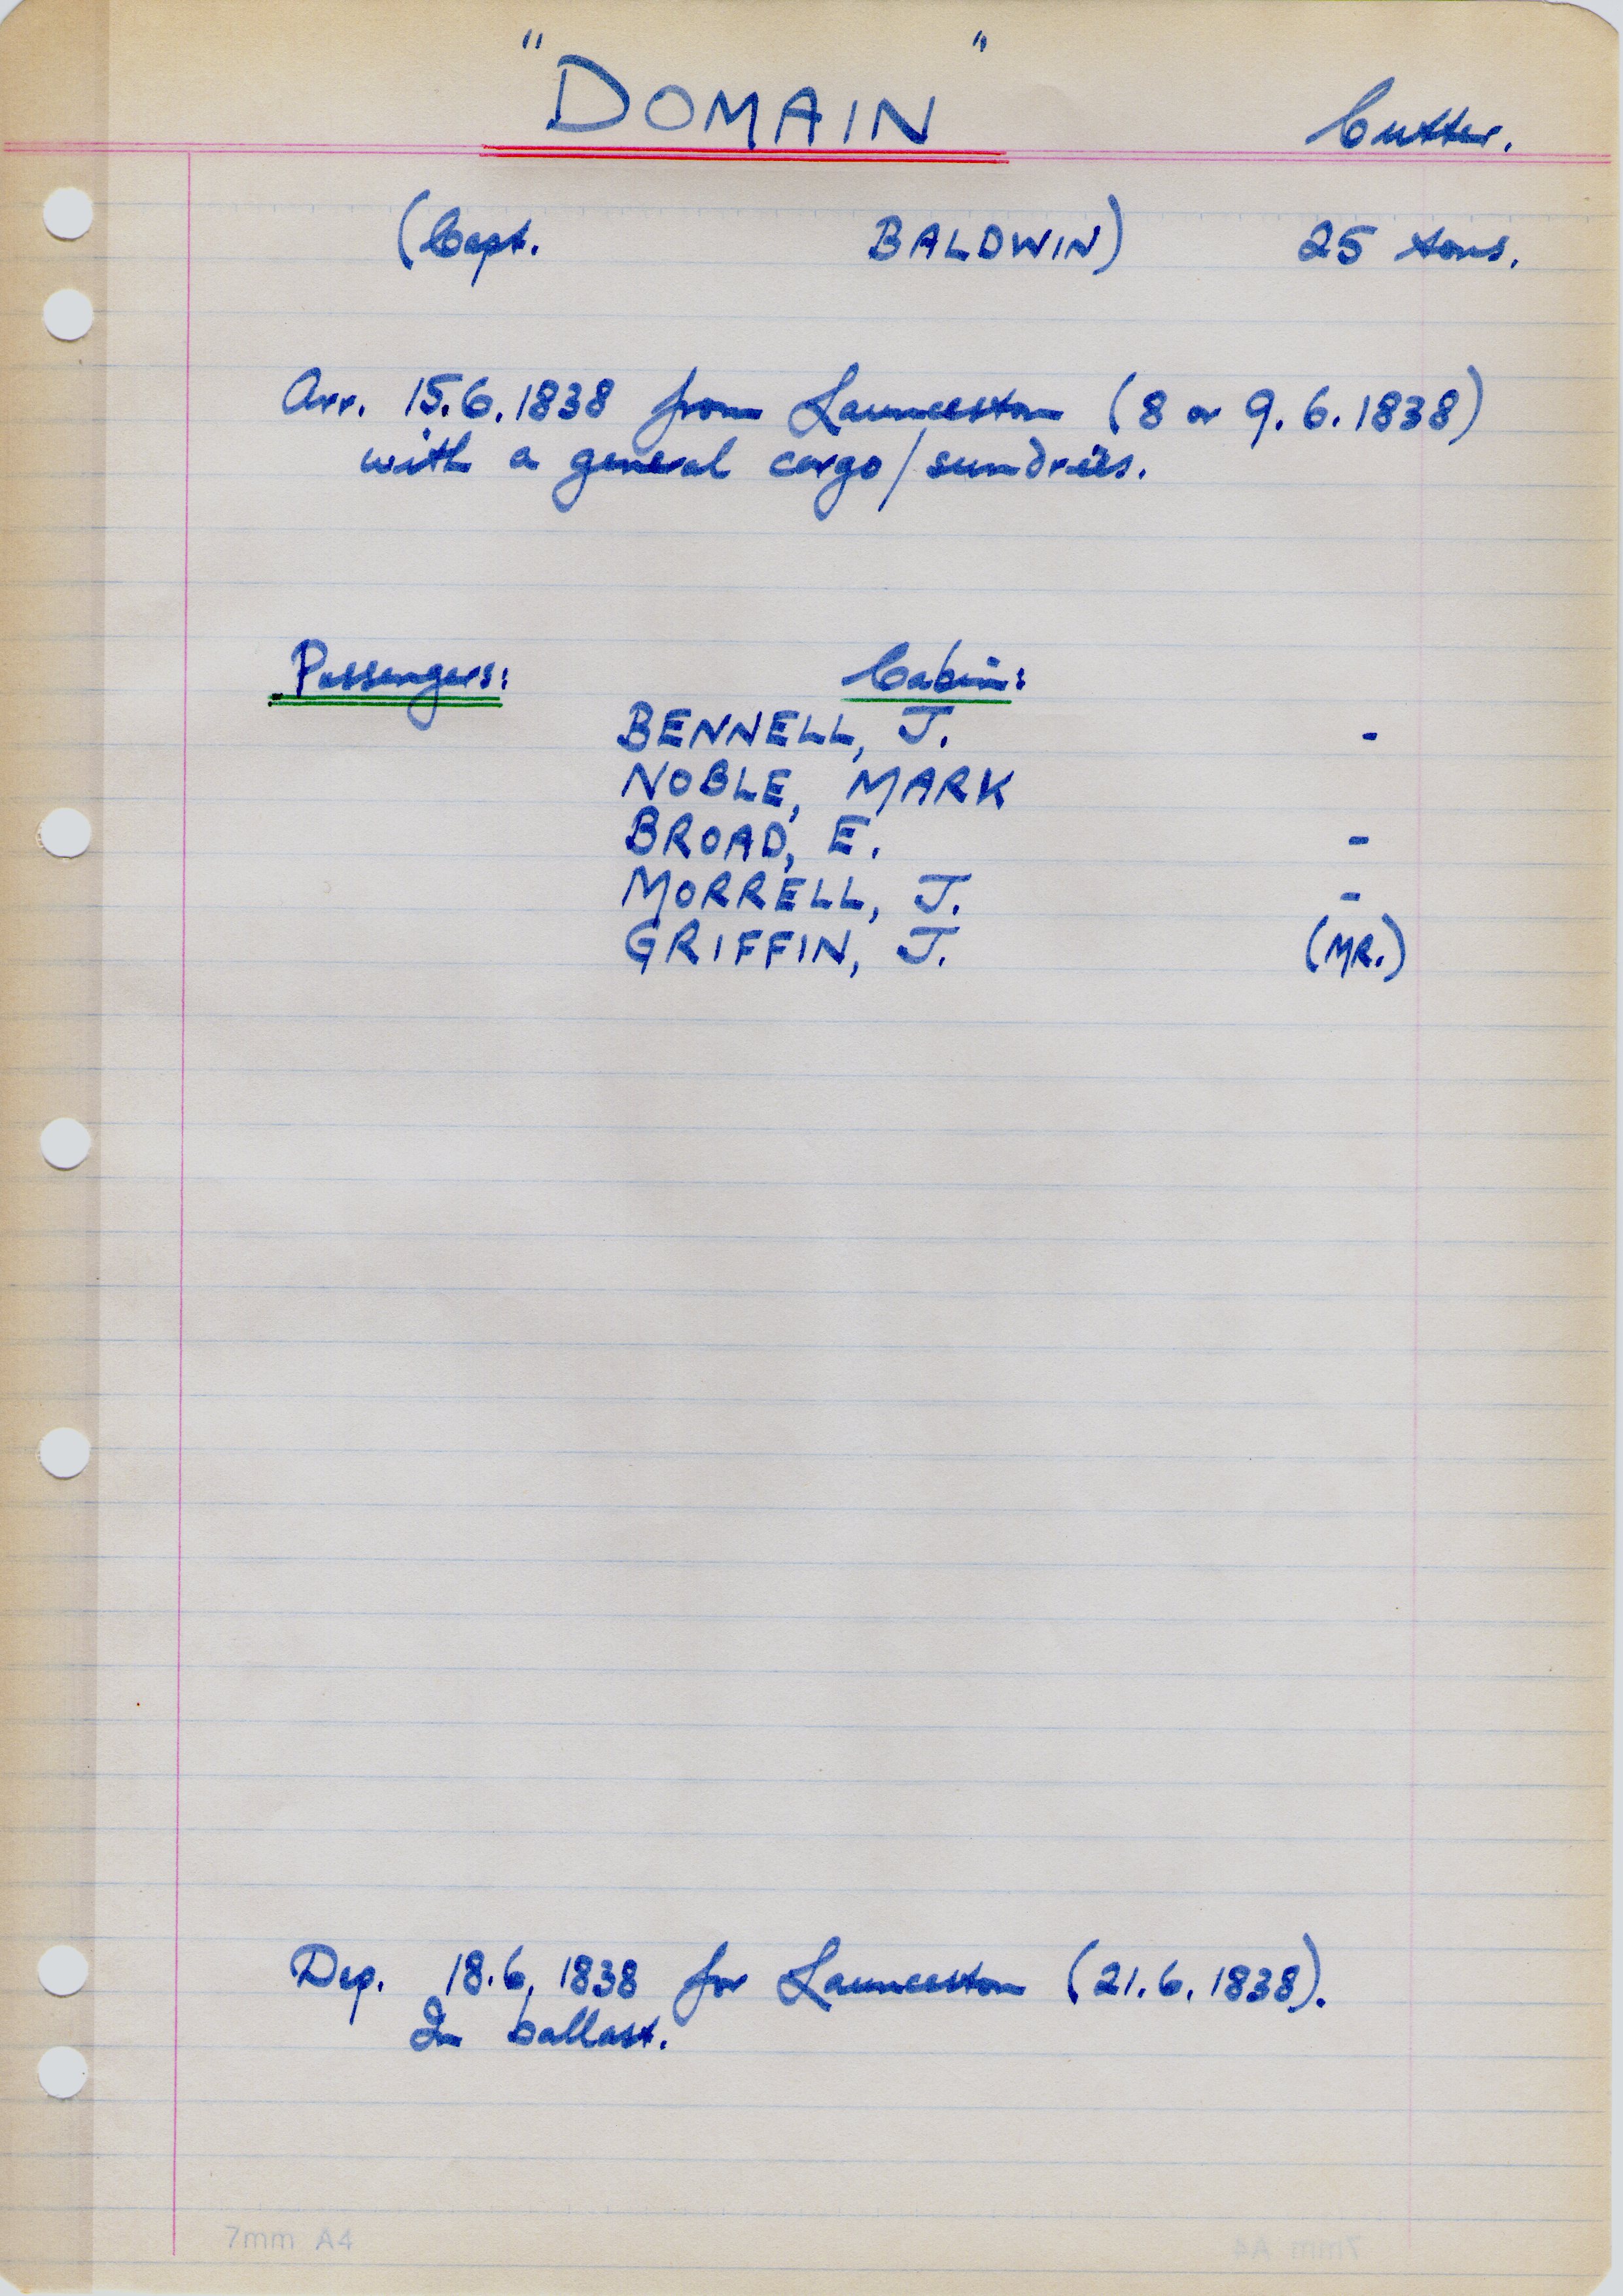 "DOMAIN" Cutter.
(Capt. BALDWIN) 25 tons.
Arr. 15.6.1838 from Launceston (8 or 9.6.1838)
with a general cargo/sundries.
Passengers: Cabin:
BENNELL, J. -
NOBLE, MARK
BROAD, E. -
MORRELL, J. -
GRIFFIN, J. (MR.)
Dep. 18.6.1838 for Launceston (21.6.1838).
In ballast.
7mm A4
7mm A4